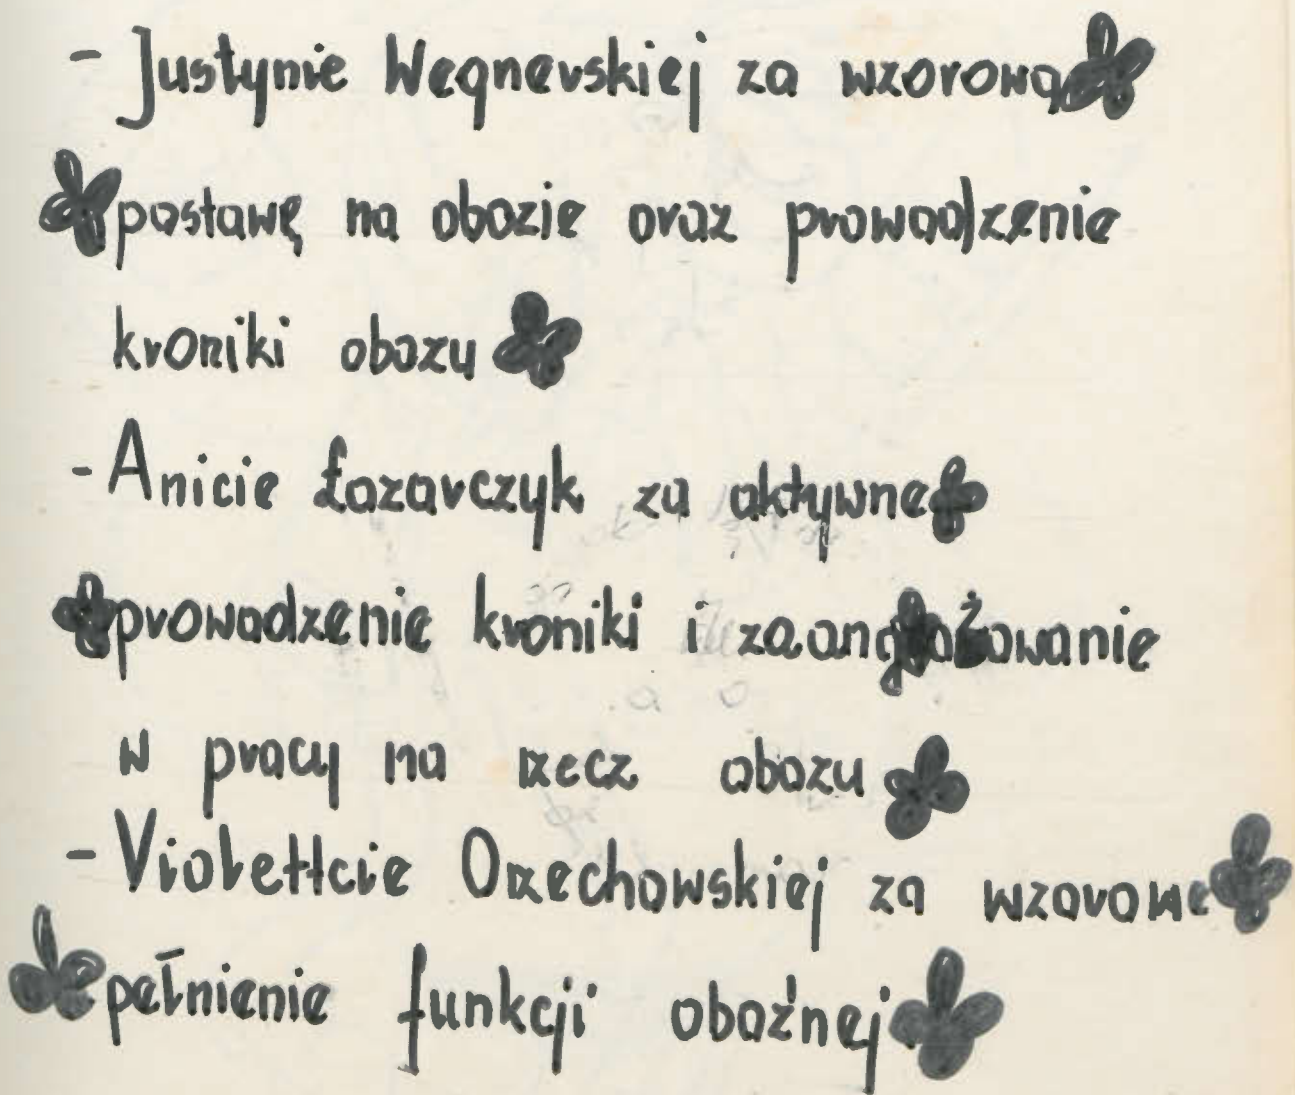 - Justynie Węgnerskiej za wzorową
postawę na obozie oraz prowadzenie
kroniki obozu
- Anicie Łazarczyk za aktywne
prowadzenie kroniki i zaangażowanie
w pracy na rzecz obozu
- Violettcie Orzechowskiej za wzorowe
pełnienie funkcji obożnej.